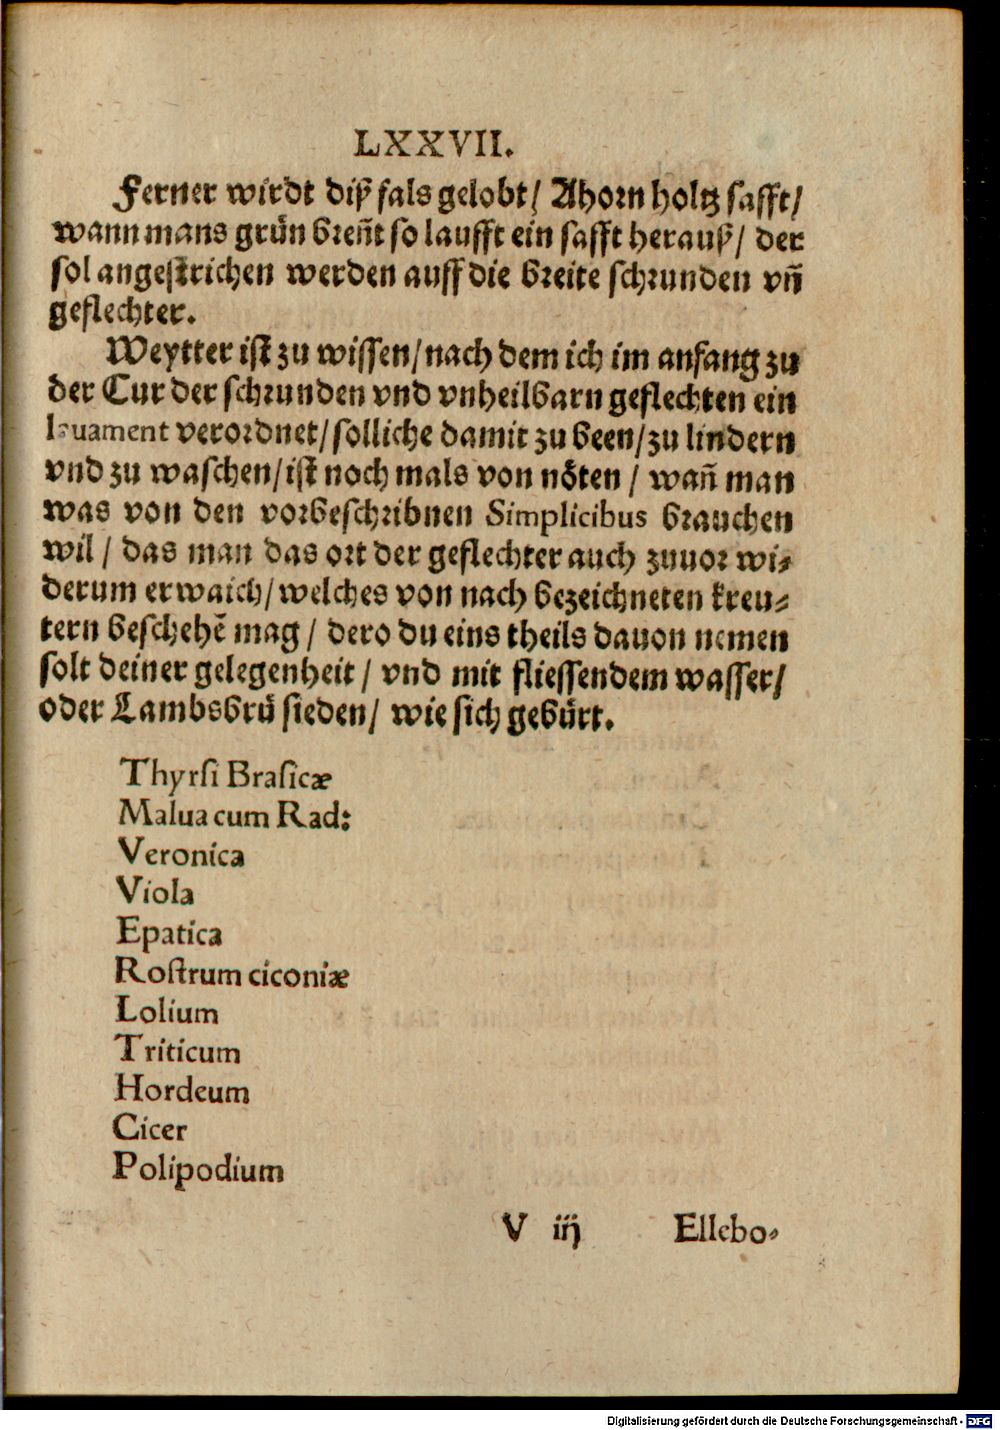 LXXVII.
Ferner wirdt diß fals gelobt/ Ahorn holtz safft/
wann mans grün breñt so laufft ein safft herauß/ der
sol angestrichen werden auff die breite schrunden vñ
geflechter.
Weytter ist zu wissen/ nach dem ich im anfang zu
der Cur der schrunden vnd vnheilbarn geflechten ein
leuament verordnet/ solliche damit zu been/ zu lindern
vnd zu waschen/ ist noch mals von nöten / wañ man
was von den vorbeschribnen Simplicibus brauchen
wil / das man das ort der geflechter auch zuuor wi⸗
derum erwaich/ welches von nach bezeichneten kreu⸗
tern beschehē mag / dero du eins theils dauon nemen
solt deiner gelegenheit / vnd mit fliessendem wasser/
oder Lambsbrü sieden/ wie sich gebürt.
Thyrsi Brasicæ
Malua cum Rad:
Veronica
Viola
Epatica
Rostrum ciconiæ
Lolium
Triticum
Hordeum
Cicer
Polipodium
V iij Ellebo⸗
Digitalisierung gefördert durch die Deutsche Forschungsgemeinschaft - DFG